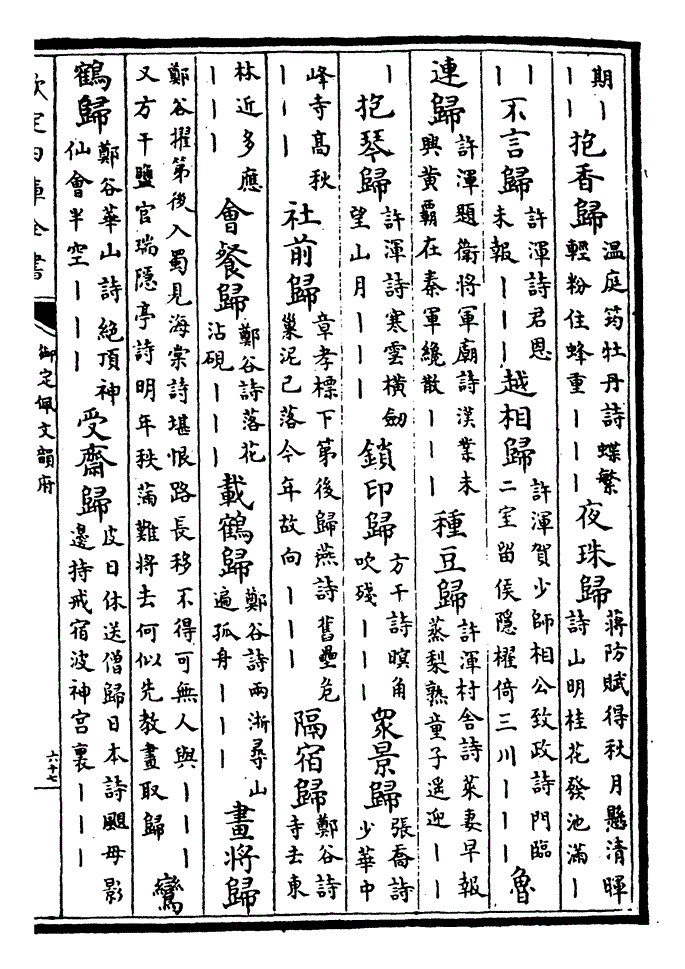 期｜｜｜抱香歸温庭筠牡丹詩蝶繁輕粉住蜂重｜｜｜夜珠歸蔣防賦得秋月懸清暉詩山明桂花發池滿｜
｜｜不言歸許渾詩君恩未報｜｜｜越相歸許渾賀少師相公致政詩門臨二室留侯隱櫂倚三川｜｜｜魯
連歸許渾題衛將軍廟詩漢業未興黄霸在秦軍纔散｜｜｜種豆歸許渾村舍詩萊妻早報蒸梨熟童子遥迎｜｜
｜抱琴歸許渾詩寒雲横劒望山月｜｜｜鎖印歸方干詩暝角吹殘｜｜｜衆景歸張喬詩少華中
峰寺高秋｜｜｜社前歸章孝標下第後歸燕詩舊壘危巢泥已落今年故向｜｜｜隔宿歸鄭谷詩寺去東
林近多應｜｜｜會餐歸鄭谷詩落花沾硯｜｜｜載鶴歸鄭谷詩兩浙尋山遍孤舟｜｜｜畫將歸
鄭谷擢第後入蜀見海棠詩堪恨路長移不得可無人與｜｜｜又方干鹽官瑞隱亭詩明年秩滿難將去何似先教畫取歸鸞
鶴歸鄭谷華山詩絶頂神仙會半空｜｜｜受齋歸皮日休送僧歸日本詩颶母影邊持戒宿波神宫裏｜｜｜
欽定四庫全書
御定佩文韻府
六十七